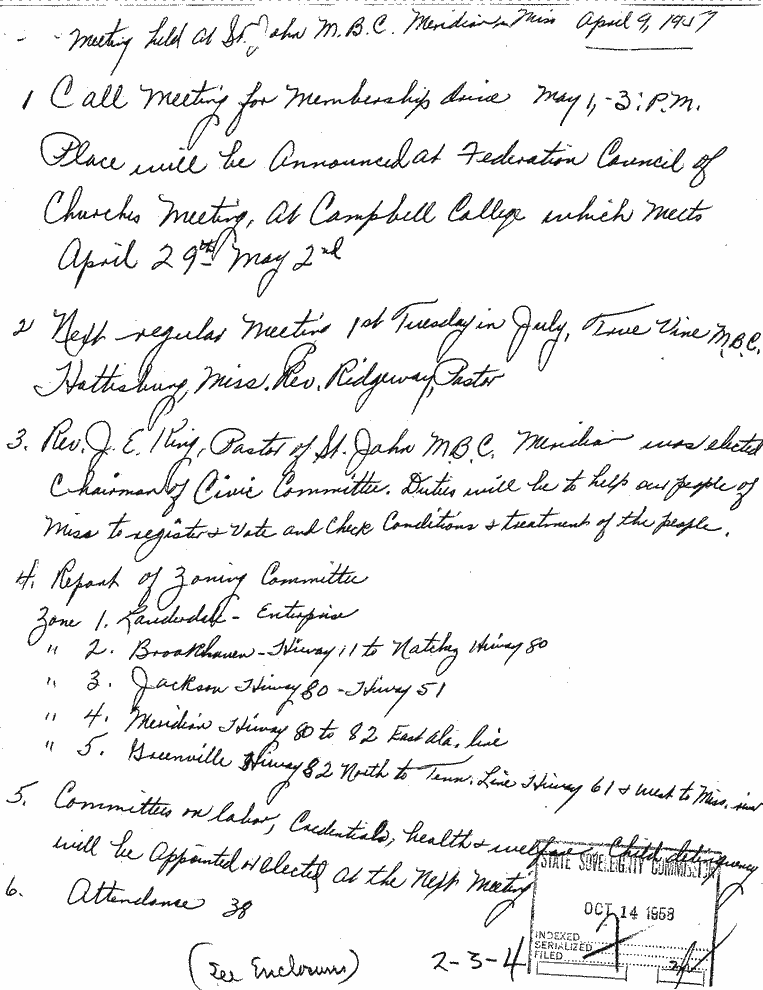 Meeting held at St. John M.B.C. Meridian Miss April 9, 1957
1 Call Meeting for Membership drive May 1, - 3: P.M.
Place will be Announced at Federation Council of
Churches Meeting, At Campbell College which meets
April 29th May 2nd
2 Next regular Meeting 1st Tuesday in July, True Vine M.B.C.
Hattisburg, Miss. Rev. Ridgeway, Pastor
3. Rev. J. E. King, Pastor of St. John M.B.C. Meridian was elected
Chairman of Civic Committee. Duties will be to help our people of
Miss to register & Vote and Check Conditions & treatment of the people.
4. Report of Zoning Committee
Zone 1. Lauderdale - Enterprise
" 2. Brookhaven - Hiway 11 to Natchez Hiway 80
" 3. Jackson Hiway 80 - Hiway 51
" 4. Meridian Hiway 80 to 82 East Ala. line
" 5. Greenville Hiway 82 North to Tenn. Line Hiway 61 & west to Miss. river
5. Committees on labor, Credentials, health & welfare & Child delinquency
will be Appointed or elected at the Next Meeting
6. Attendance 38
STATE SOVEREIGNTY COMMISSION
OCT 14 1958
INDEXED
SERIALIZED
FILED
(See Enclosure) 2-3-4